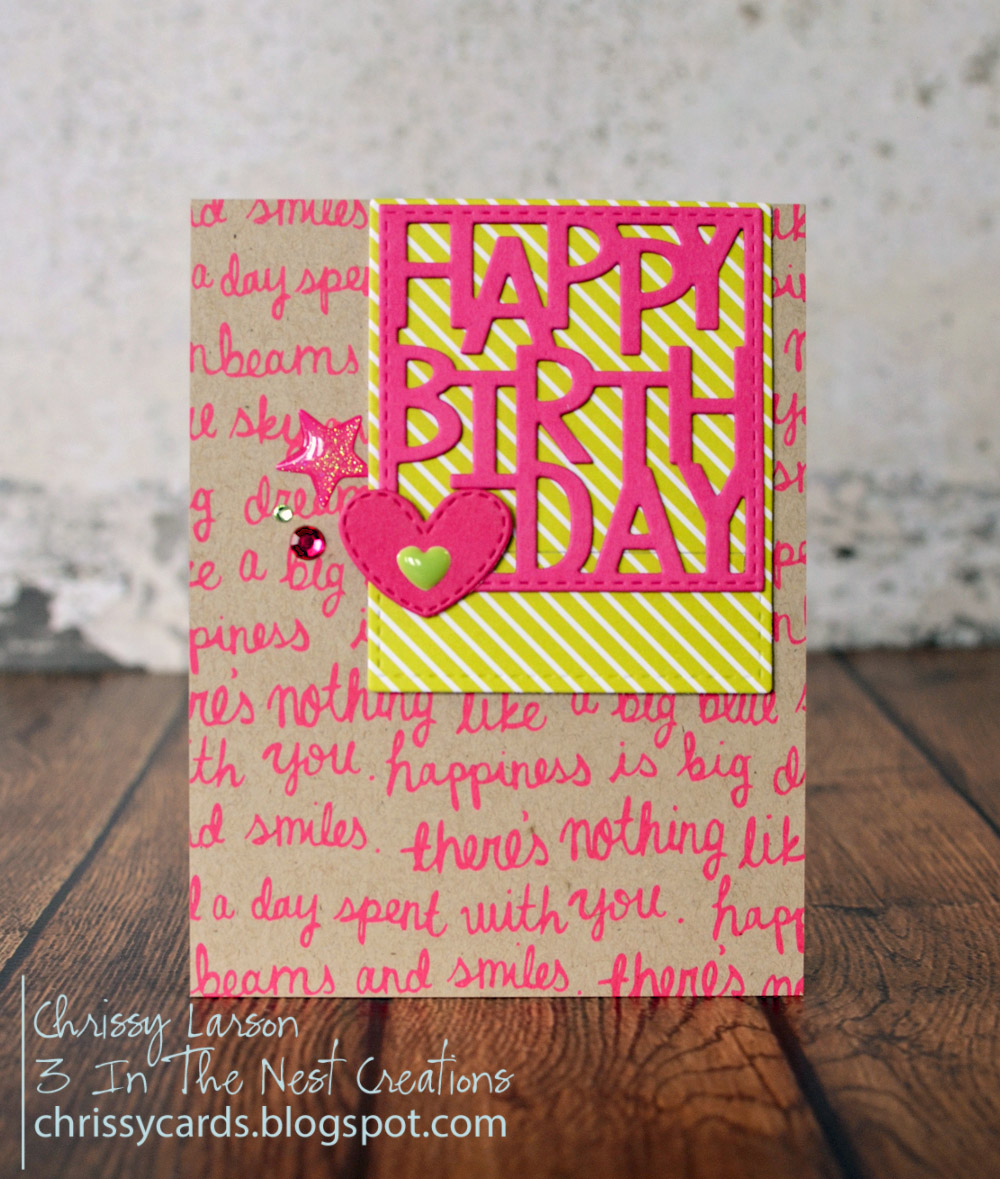 d smiles
a day spe
HAPPY
nbeams
BIRTH
sky
DAY
g dream
e a big
piness
re's nothing like a big blue s
ith you. happiness is big d
d smiles. there's nothing lik
l a day spent with you. happ
beams and smiles. there's n
Chrissy Larson
3 In The Nest Creations
chrissycards.blogspot.com